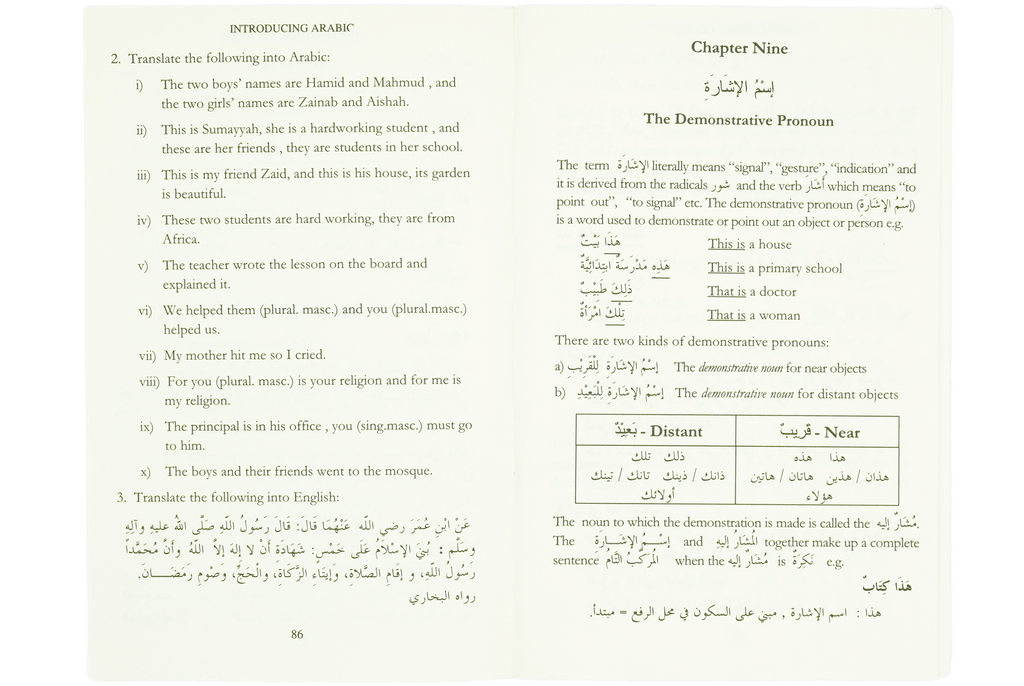 INTRODUCING ARABIC
2. Translate the following into Arabic:
i) The two boys' names are Hamid and Mahmud , and
the two girls' names are Zainab and Aishah.
ii) This is Sumayyah, she is a hardworking student , and
these are her friends , they are students in her school.
iii) This is my friend Zaid, and this is his house, its garden
is beautiful.
iv) These two students are hard working, they are from
Africa.
v) The teacher wrote the lesson on the board and
explained it.
vi) We helped them (plural. masc.) and you (plural.masc.)
helped us.
vii) My mother hit me so I cried.
viii) For you (plural. masc.) is your religion and for me is
my religion.
ix) The principal is in his office , you (sing.masc.) must go
to him.
x) The boys and their friends went to the mosque.
3. Translate the following into English:
عَنْ ابْنِ عُمَرَ رضي الله عَنْهُمَا قَالَ: قَالَ رَسُولُ اللهِ صَلَّى اللهُ عليه وآلِهِ
وسَلَّم : بُنِيَ الإِسْلاَمُ عَلَى خَمْسٍ: شَهَادَةِ أَنْ لا إِلهَ إِلاَّ اللهُ وأَنَّ مُحَمَّداً
رَسُولُ اللهِ، و إِقَامِ الصَّلاَةِ، وإِيتَاءِ الزَّكَاةِ، والْحَجِّ، وصَوْمِ رَمَضَــانَ.
رواه البخاري
86
Chapter Nine
إِسْمُ الإِشَارَةِ
The Demonstrative Pronoun
The term الإِشَارَةِ literally means “signal”, “gesture”, “indication” and
it is derived from the radicals شور and the verb أَشَارَ which means “to
point out”, “to signal” etc. The demonstrative pronoun (إِسْمُ الإِشَارَةِ)
is a word used to demonstrate or point out an object or person e.g.
هَذَا بَيْتٌ This is a house
هَذِهِ مَدْرَسَةٌ ابتِدَائِيَّةٌ This is a primary school
ذَلِكَ طَبِيْبٌ That is a doctor
تِلْكَ امْرَأَةٌ That is a woman
There are two kinds of demonstrative pronouns:
a) إِسْمُ الإِشَارَةِ لِلْقَرِيْبِ The demonstrative noun for near objects
b) إِسْمُ الإِشَارَةِ لِلْبَعِيْدِ The demonstrative noun for distant objects
بَعِيْدٌ - Distant قَرِيبٌ - Near
ذلك تلك هذا هذه
ذانك / ذينك تانك / تينك هذان / هذين هاتان / هاتين
أولائك هؤلاء
The noun to which the demonstration is made is called the مُشَارٌ إليه.
The إِسْمُ الإِشَارَةِ and المُشَارُ إليه together make up a complete
sentence المُرَكَّبُ التَّامُ when the مُشَارٌ إليه is نَكِرَةٌ e.g.
هَذَا كِتَابٌ
هذا : اسم الإشارة , مبني على السكون في محل الرفع = مبتدأ.